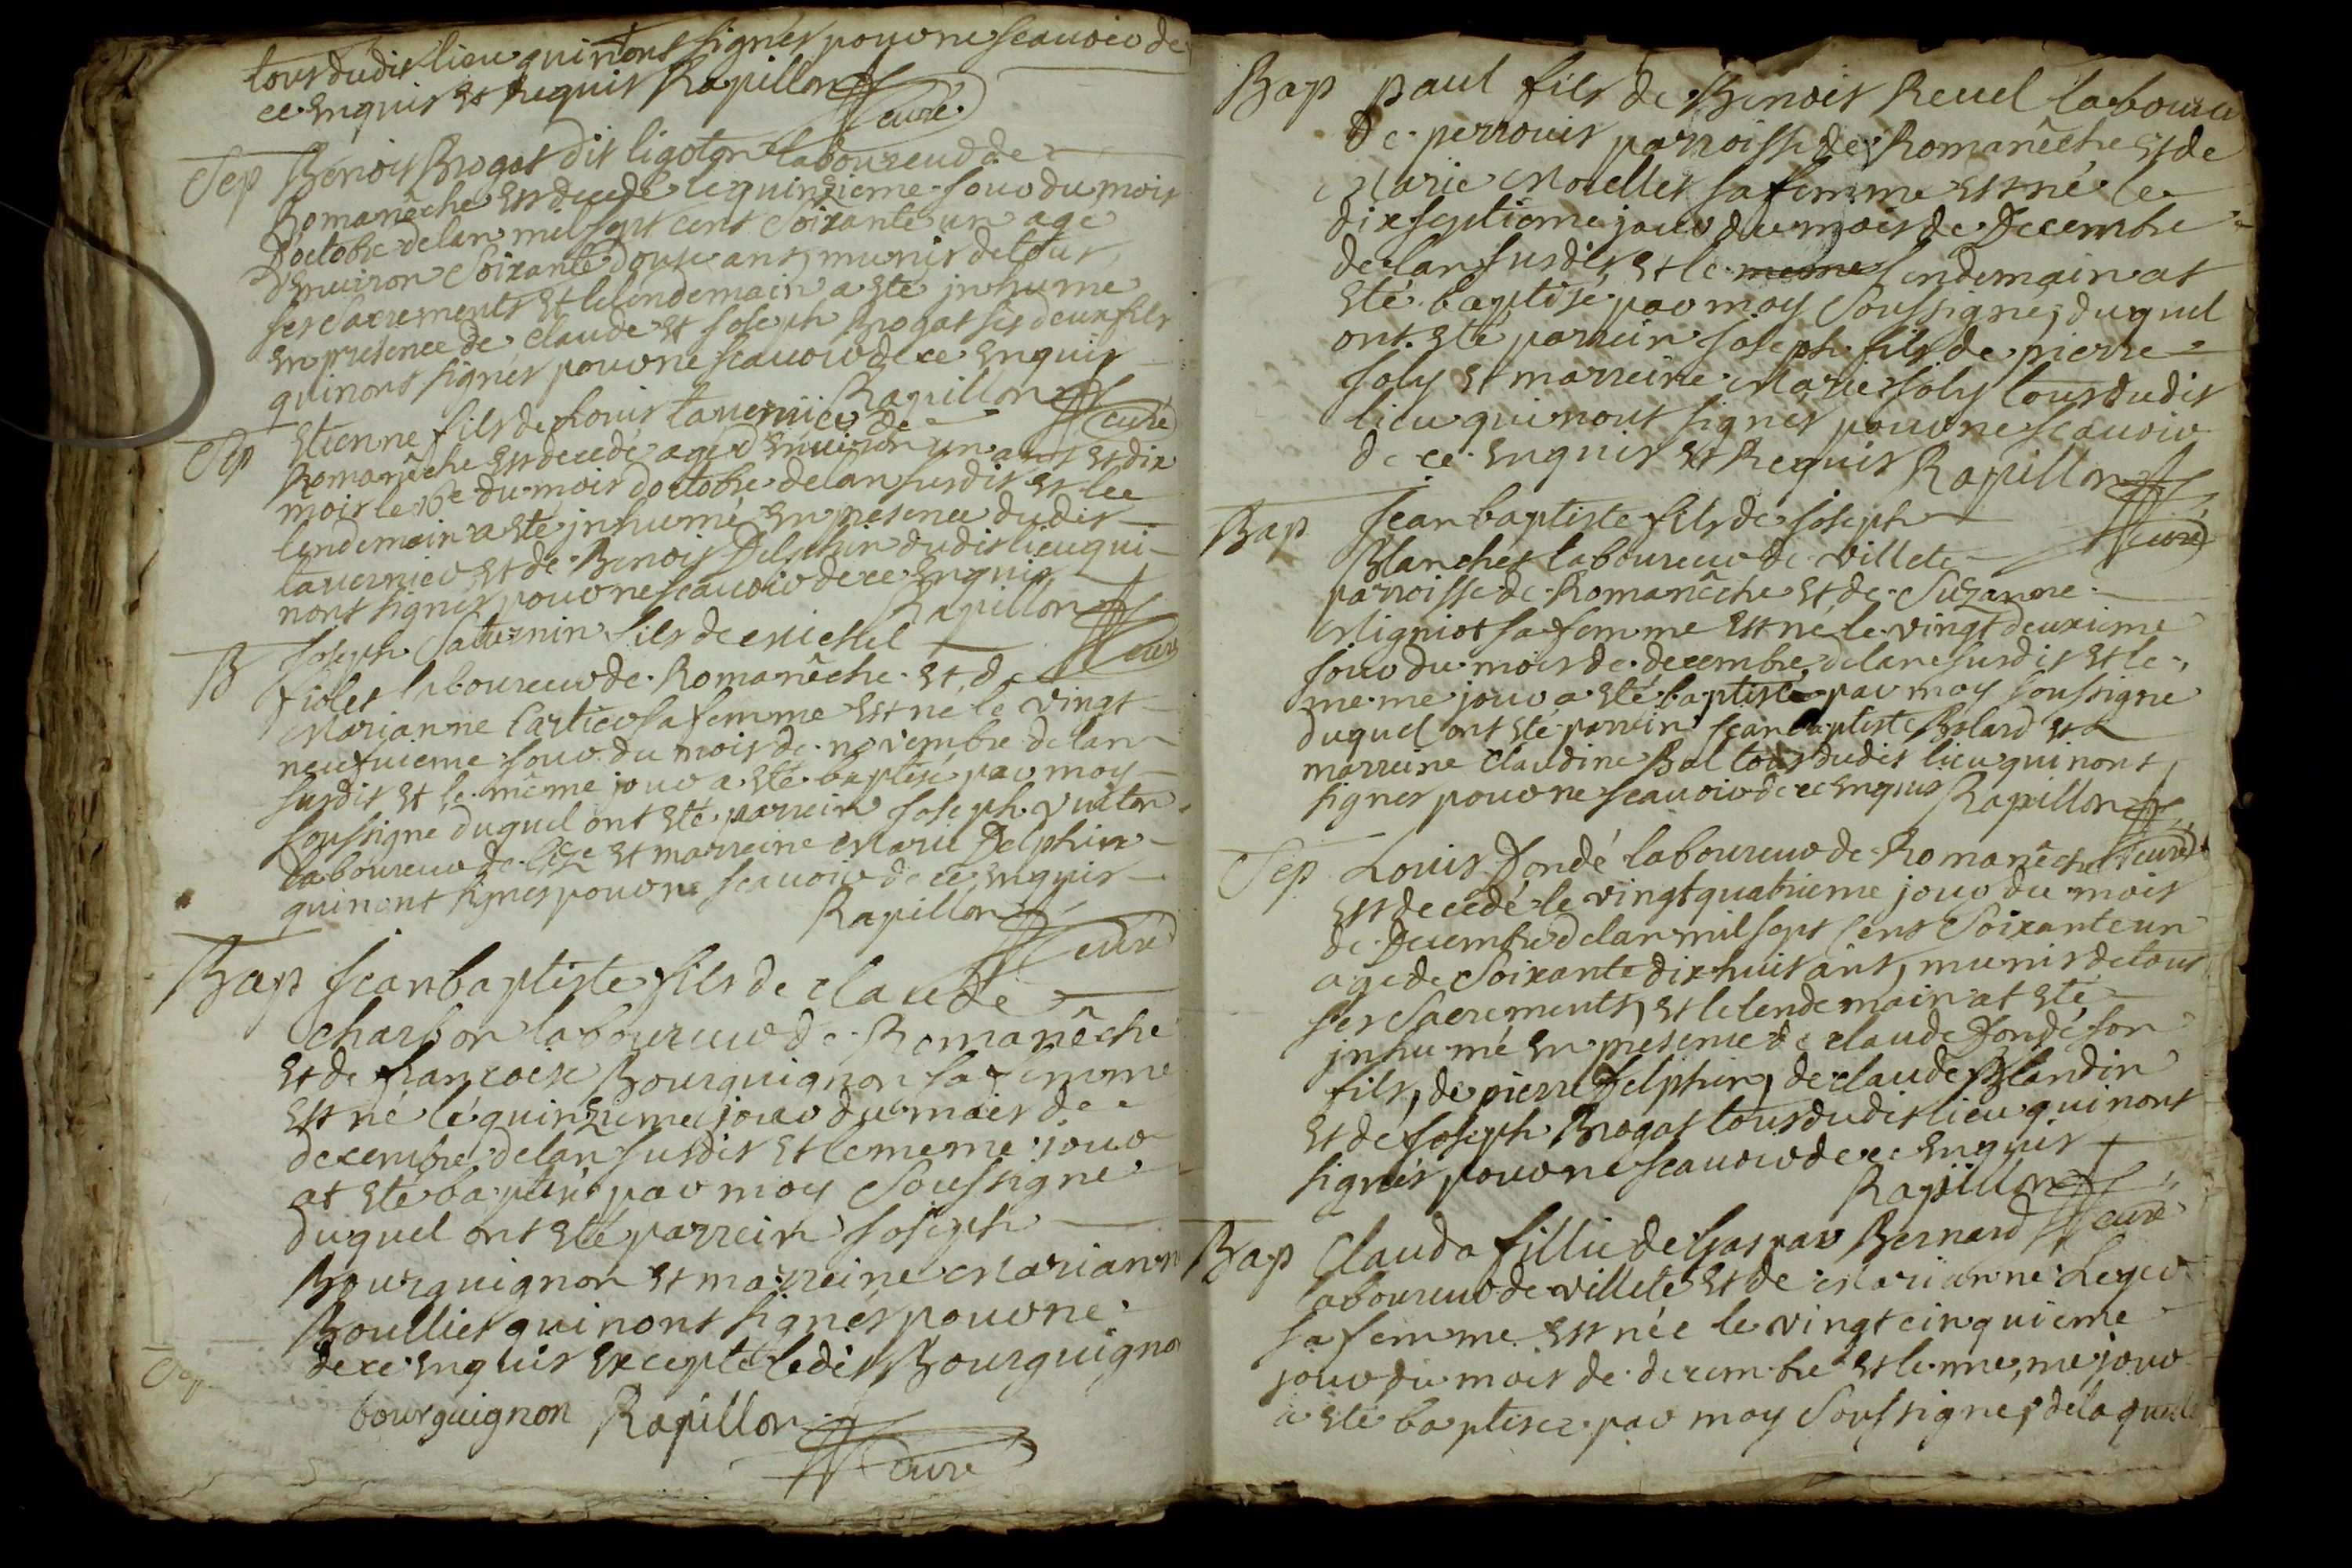 tous dudit lieu qui nont signés pour ne scauoir de
ce enquis et Requis Rapillon
curé
Sep Benoit Brogat dit ligoton laboureur de
Romanêche est decede le quinzieme jour du mois
doctobre delan mil sept cent Soixante un age
d'enuiron Soixante douze ans, munis de tous
ses sacrements et lelendemain a ete jnhume
en presence de claude et joseph Brogat ses deux fils
qui nont signés pour ne scauoir de ce enquis
Rapillon
curé
Sep Etienne fils de Louis tauernier de
Romanêche est decedé age d'enuiron un ans et dix
mois le 16e du mois doctobre delan susdit et le
lendemain a eté jnhumé en presence dudit
tauernier et de Benois Delphin dudit lieu qui
nont signés pour ne scauoir de ce enquis
Rapillon
curé
B Joseph Saturnin fils de michel
fiolet laboureur de Romanêche et de
Marianne Cartier sa femme est ne le vingt
neufuieme jour du mois de novembre delan
susdit et le même jour a ete baptisé par moy
soussigne duquel ont eté parrein joseph vuiton
laboureur de et marreine Marie Delphin
qui nont signes pour ne scauoir de ce enquis
Rapillon
curé
Bap jean baptiste fils de claude
charbon laboureur de Romanêche
et de francoise Bourguignon sa femme
est né le quinzieme jour du mois de
decembre delan susdit et le meme jour
at eté baptisé par moy Soussigne
duquel ont eté parrein joseph
Bourguignon et marreine Mariann
Boulliet qui nont signés pour ne
de ce enquis excepté ledit Bourguigno
bourguignon Rapillon
curé
Bap paul fils de Benoit Reuel laboureu
de perrouis parroisse de Romanêche et de
Marie Moellet sa femme est né le
dixseptieme jour du mois de Decembre
de lan susdit et le meme lendemain at
eté baptisé par moy Soussigné, duquel
ont eté parrein joseph fils de pierre
joly et marreine Marie joly tous dudit
lieu qui nont signes pour ne scauoir
de ce enquis et Requis Rapillon
curé
Bap jean baptiste fils de joseph
Blanchet laboureur de villete
parroisse de Romanêche et de Suzanne
Migniot sa femme est né le vingt deuxieme
jour du mois de decembre delan susdit et le
meme jour a eté baptisé par moy soussigne
duquel ont eté parrein jean baptiste Bolard et
marreine claudine Bal tous dudit lieu qui nont
signes pour ne scauoir de ce enquis Rapillon
curé
Sep Louis fondé laboureur de Romanêche
est decedé le vingt quatrieme jour du mois
de Decembre delan mil sept Cent Soixante un
age de Soixante dix huit ans, munis de tous
ses Sacrements, et lelendemain at eté
jnhumé en presence de claude fondé son
fils, de pierre felphin, de claude Blandin
et de joseph Brogat tous dudit lieu qui nont
signés pour ne scauoir de ce enquis
Rapillon
curé
Bap Clauda fillie de gaspar Bernard
laboureur de villete et de Marianne Leger
sa femme est née le vingt cinquieme
jour du mois de decembre et le meme jour
a eté baptisee par moy Soussigne, de laquelle